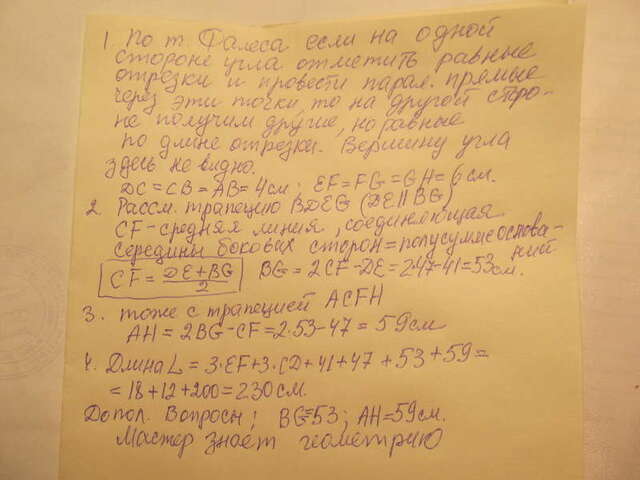 1. По т. Фалеса если на одной
стороне угла отметить равные
отрезки и провести парал. прямые
через эти точки, то на другой сторо-
не получим другие, но равные
по длине отрезки. Вершину угла
здесь не видно.
DC = CB = AB = 4 см; EF = FG = GH = 6 см.
2. Рассм. трапецию BDEG (DE || BG)
CF - средняя линия, соединяющая
середины боковых сторон = полусумме основа-
ний
CF = DE + BG / 2 BG = 2CF - DE = 2·47 - 41 = 53 см.
3. тоже с трапецией ACFH
AH = 2BG - CF = 2·53 - 47 = 59 см
4. Длина L = 3·EF + 3·CD + 41 + 47 + 53 + 59 =
= 18 + 12 + 200 = 230 см.
Допол. Вопросы; BG = 53; AH = 59 см.
Мастер знает геометрию